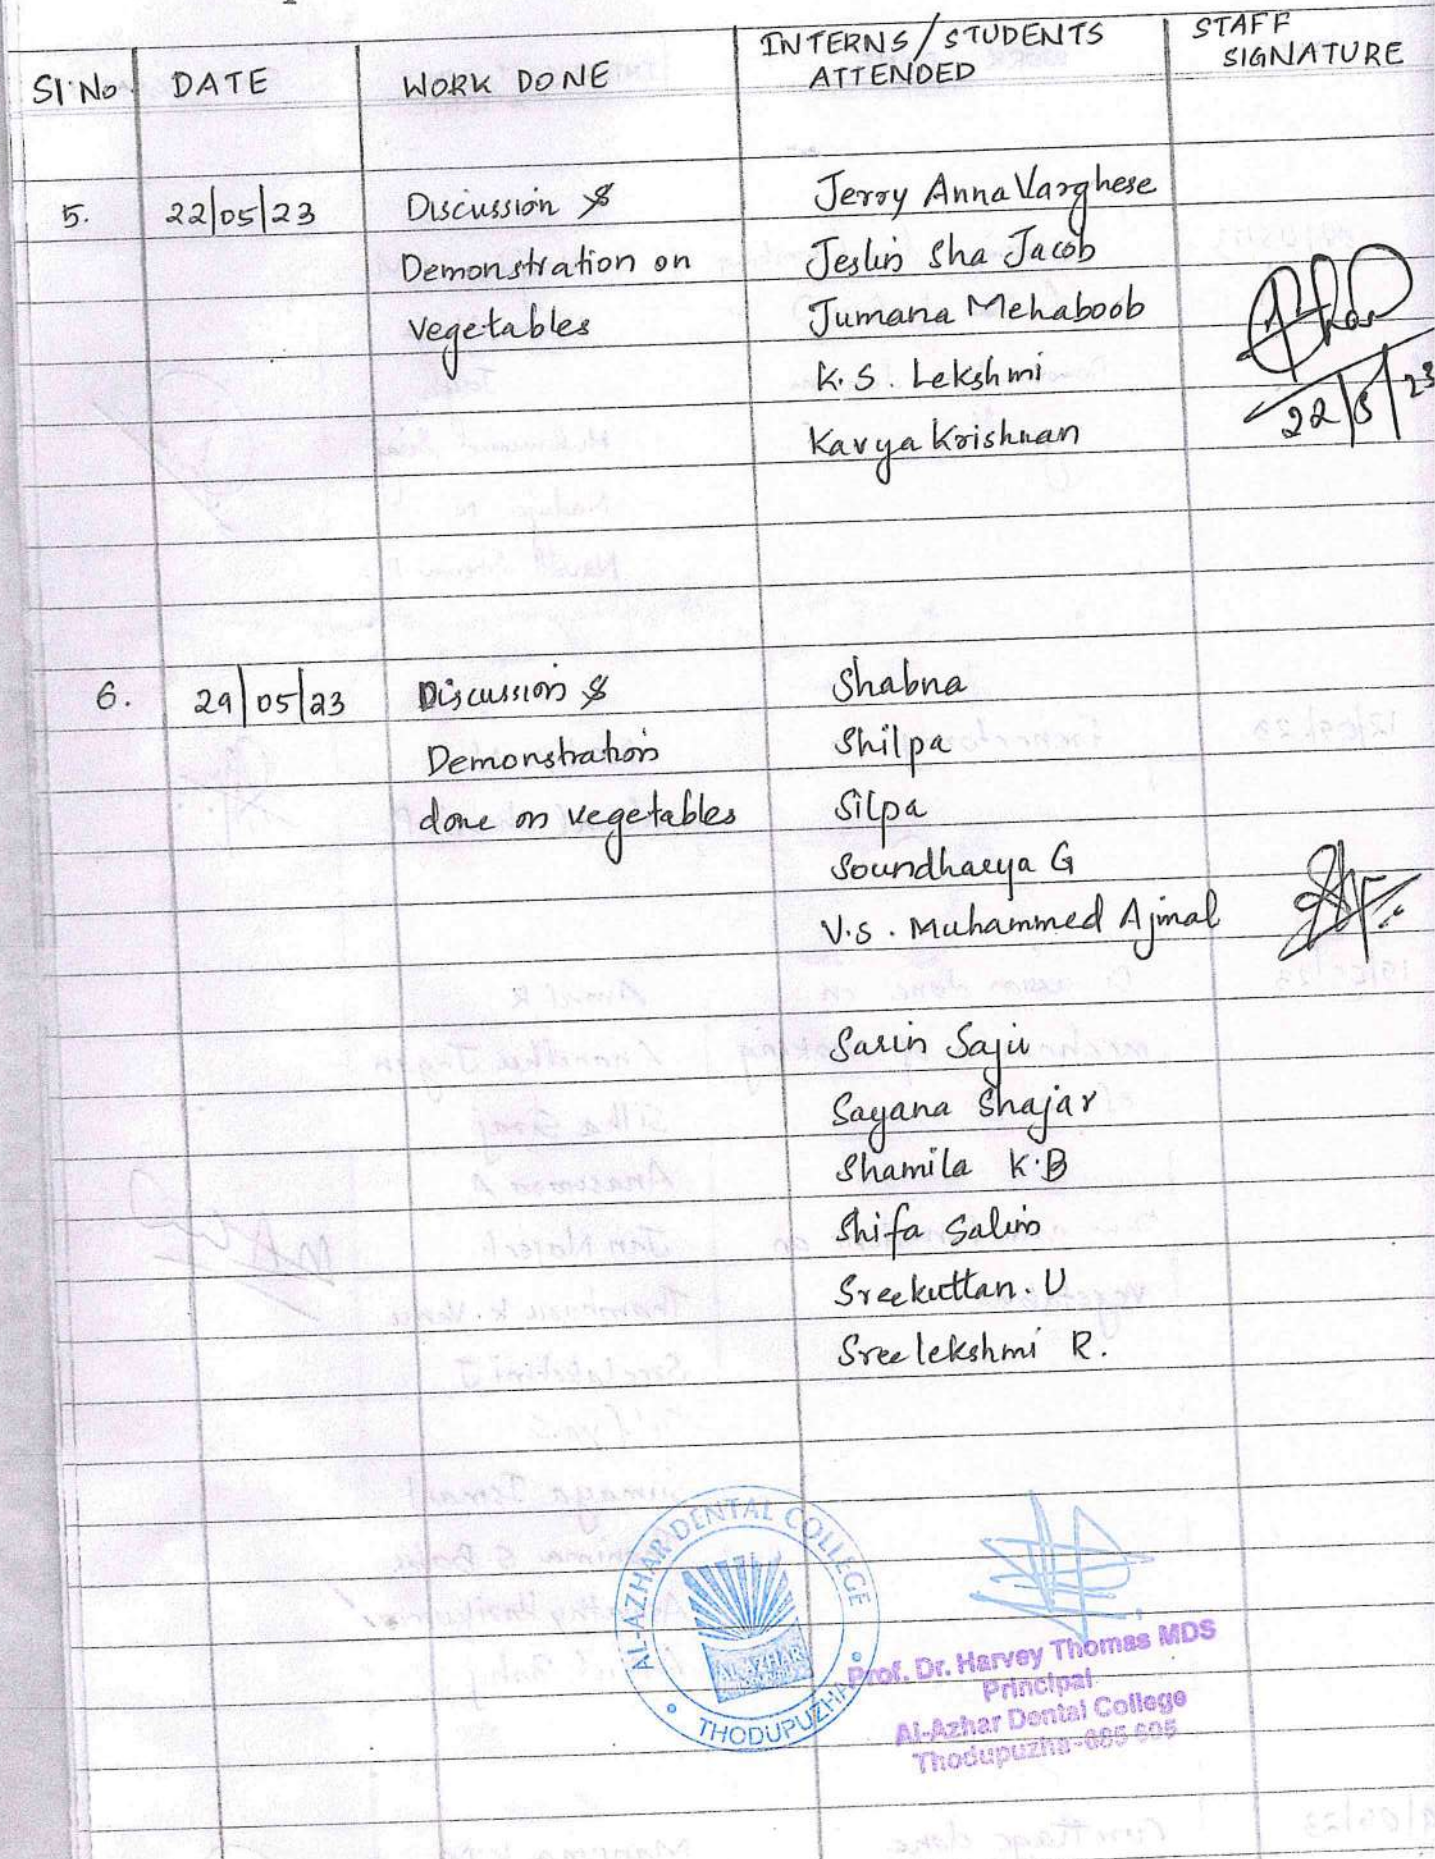 SI No DATE WORK DONE INTERNS/STUDENTS ATTENDED STAFF SIGNATURE
5. 22/05/23 Discussion & Jerry Anna Varghese
Demonstration on Jeslin Sha Jacob
vegetables Jumana Mehaboob
K.S. Lekshmi
Kavya Krishnan
22/5/23
6. 29/05/23 Discussion & Shabna
Demonstration Shilpa
done on vegetables Silpa
Soundharya G
V.S. Muhammed Ajmal
Sarin Saju
Sayana Shajar
Shamila K.B
Shifa Salim
Sreekuttan. U
Sreelekshmi R.
AL-AZHAR DENTAL COLLEGE
AL-AZHAR
THODUPUZHA
Prof. Dr. Harvey Thomas MDS
Principal
Al-Azhar Dental College
Thodupuzha-685 605